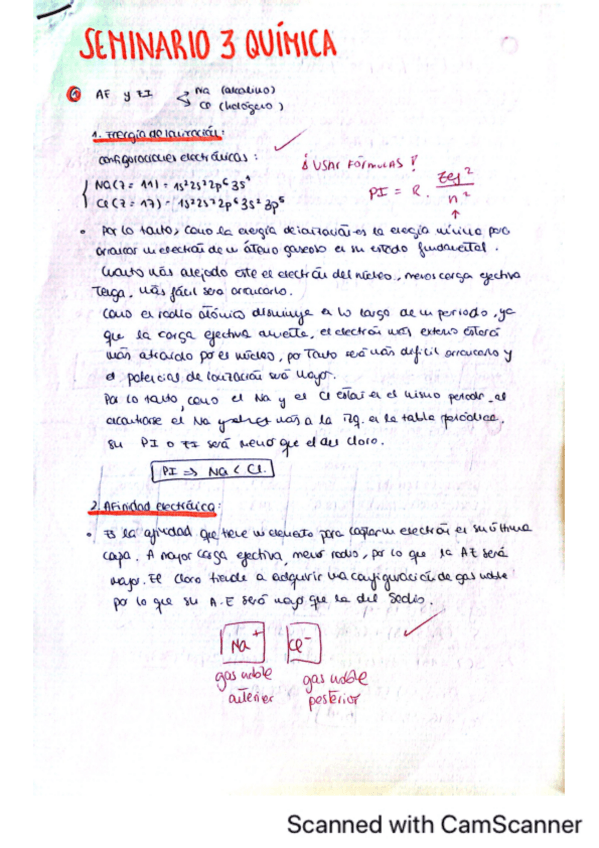 SEMINARIO 3 QUÍMICA
① AE y EI → Na (alcalino)
→ Cl (halógeno)
1. Energía de ionización:
configuraciones electrónicas:
¡USAR FÓRMULAS!
Na (Z = 11) = 1s²2s²2p⁶3s¹
Cl (Z = 17) = 1s²2s²2p⁶3s²3p⁵
PI = R. Zef² / n²
• Por lo tanto, como la energía de ionización es la energía mínima para
arrancar un electrón de un átomo gaseoso en su estado fundamental.
Cuanto más alejado este el electrón del núcleo, menos carga efectiva
Tenga, más fácil será arrancarlo.
Como el radio atómico disminuye a lo largo de un periodo, ya
que la carga efectiva aumenta, el electrón más externo estará
más atraído por el núcleo, por tanto será más difícil arrancarlo y
el potencial de ionización será mayor.
Por lo tanto, como el Na y el Cl están en el mismo periodo, al
encontrarse el Na más a la izq. en la tabla periódica,
su PI o EI será menor que el del cloro.
PI ⇒ Na < Cl.
2. Afinidad electrónica:
• Es la afinidad que tiene un elemento para captar un electrón en su última
capa. A mayor carga efectiva, menor radio, por lo que la AE será
mayor. El cloro tiende a adquirir una configuración de gas noble
por lo que su A.E será mayor que la del Sodio.
Na⁺ Cl⁻
gas noble anterior
gas noble posterior
Scanned with CamScanner